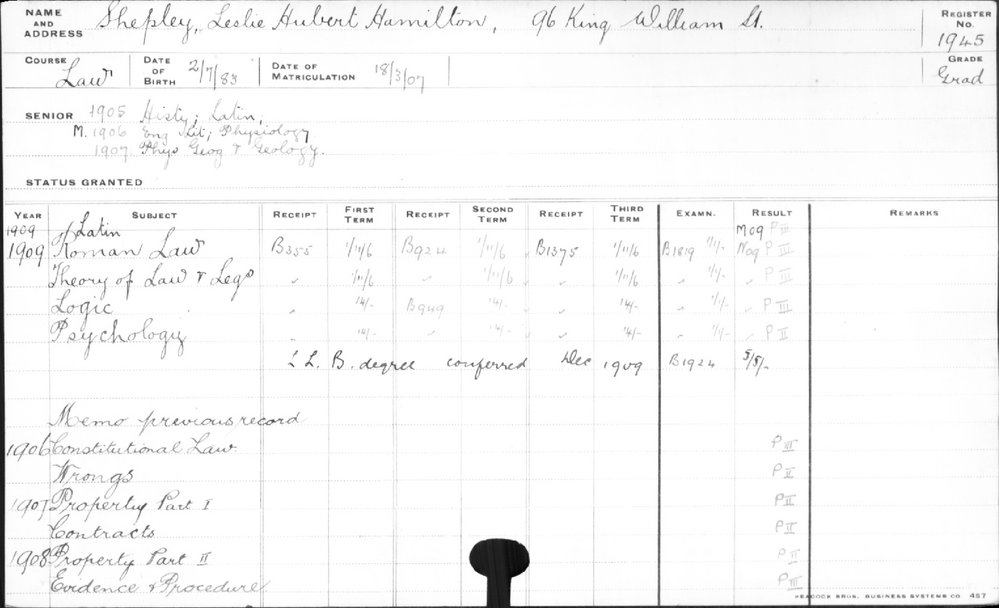 NAME AND ADDRESS Shepley, Leslie Hubert Hamilton, 96 King William St. REGISTER No. 1945
COURSE Law DATE OF BIRTH 2/7/83 DATE OF MATRICULATION 18/3/07 GRADE Grad
SENIOR 1905 Histy; Latin,
M. 1906 Eng Lit; Physiology
1907. Phys Geog & Geology.
STATUS GRANTED
YEAR SUBJECT RECEIPT FIRST TERM RECEIPT SECOND TERM RECEIPT THIRD TERM EXAMN. RESULT REMARKS
1909 Latin M09 P III
1909 Roman Law B355 1/11/6 B924 1/11/6 B1375 1/11/6 B1819 1/1/- N09 P III
Theory of Law & Legs " 1/11/6 1/11/6 " 1/11/6 " 1/1/- " P III
Logic " 14/- B949 14/- " 14/- " 1/1/- " P III
Psychology " 14/- " 14/- " 14/- " 1/1/- " P II
LL.B. degree conferred Dec 1909 B1924 5/5/-
Memo previous record
1906 Constitutional Law P III
Wrongs P II
1907 Property Part I P II
Contracts P II
1908 Property Part II P II
Evidence & Procedure P III
PEACOCK BROS. BUSINESS SYSTEMS CO. 457